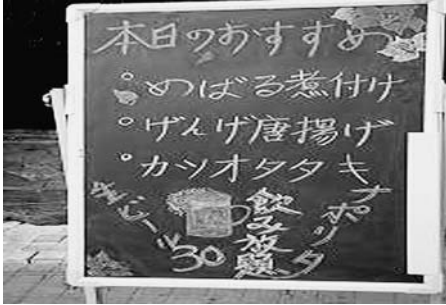 本日のおすすめ
めばる煮付け
げんげ唐揚げ
カツオタタキ
生ビール30
飲み放題
ナポリタ